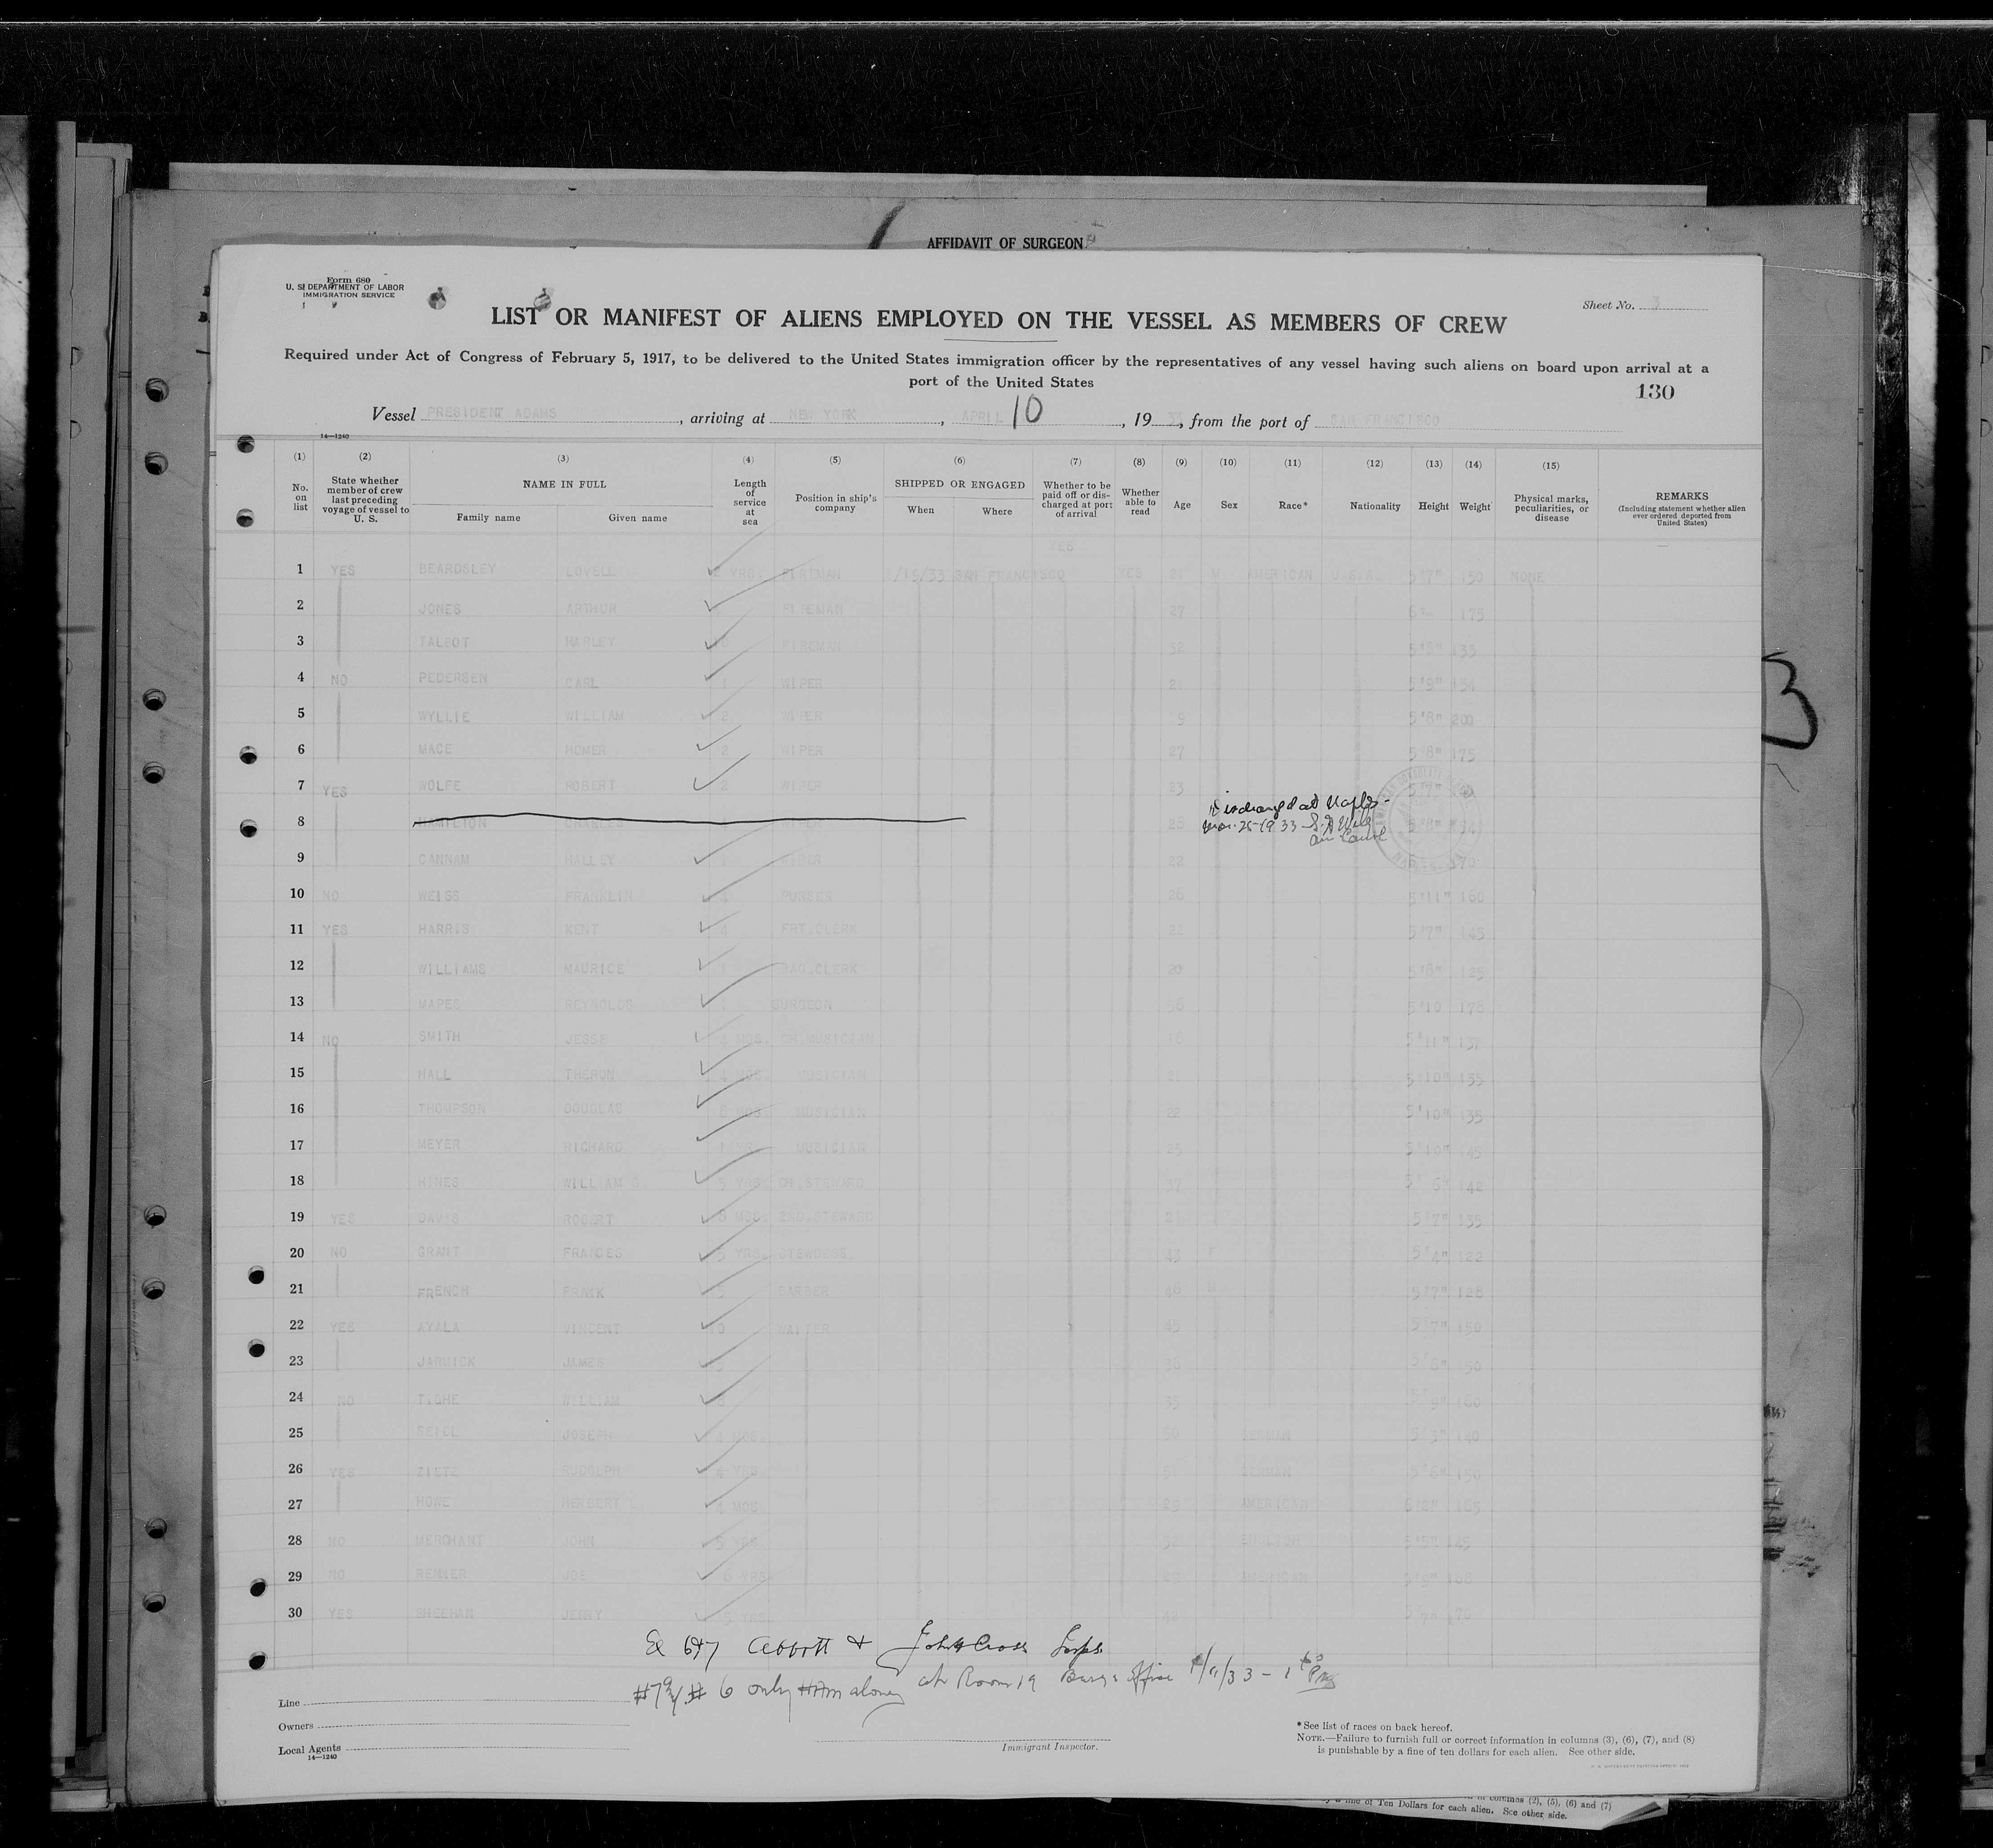 AFFIDAVIT OF SURGEON
Form 680
U. S. DEPARTMENT OF LABOR
IMMIGRATION SERVICE
Sheet No. 3
LIST OR MANIFEST OF ALIENS EMPLOYED ON THE VESSEL AS MEMBERS OF CREW
Required under Act of Congress of February 5, 1917, to be delivered to the United States immigration officer by the representatives of any vessel having such aliens on board upon arrival at a
port of the United States
130
Vessel PRESIDENT ADAMS, arriving at NEW YORK, APRIL 10, 1933, from the port of SAN FRANCISCO
14—1240
(1) (2) (3) (4) (5) (6) (7) (8) (9) (10) (11) (12) (13) (14) (15)
No. on list
State whether member of crew last preceding voyage of vessel to U. S.
NAME IN FULL
Family name Given name
Length of service at sea
Position in ship's company
SHIPPED OR ENGAGED
When Where
Whether to be paid off or discharged at port of arrival
Whether able to read
Age
Sex
Race*
Nationality
Height
Weight
Physical marks, peculiarities, or disease
REMARKS
(Including statement whether alien ever ordered deported from United States)
YES
1 YES BEARDSLEY LOVELL 2 YRS. FIREMAN 1/15/33 SAN FRANCISCO YES 21 M AMERICAN U.S.A. 5'7" 150 NONE
2 JONES ARTHUR FIREMAN 27 175
3 TALBOT HARLEY FIREMAN 32 5'8" 135
4 NO PEDERSEN CARL 1 WIPER 21 5'9" 154
5 WYLLIE WILLIAM 2 WIPER 5'8" 200
6 MACE HOMER 2 WIPER 27 5'8" 175
7 YES WOLFE ROBERT 2 WIPER 23 5'7"
8 HAMILTON CHARLES WIPER 28 5'8"
Discharged at Naples-
Mar. 25-1933
9 CANNAM HALLEY WIPER 22 170
10 NO WEISS FRANKLIN 4 PURSER 26 5'11" 160
11 YES HARRIS KENT 4 FRT.CLERK 22 5'7" 145
12 WILLIAMS MAURICE BAG.CLERK 20 5'8" 125
13 MAPES REYNOLDS SURGEON 56 5'10 178
14 NO SMITH JESSE 4 MOS. CH.MUSICIAN 18 5'11" 137
15 HALL THERON 4 MOS. MUSICIAN 21 5'10" 155
16 THOMPSON DOUGLAS 6 MOS. MUSICIAN 22 5'10" 135
17 MEYER RICHARD 1 YR. MUSICIAN 25 5'10" 145
18 HINES WILLIAM G. 5 YRS CH.STEWARD 37 5' 6" 142
19 YES DAVIS ROBERT 6 MOS. 2ND.STEWARD 21 5'7" 135
20 NO GRANT FRANCES 5 YRS. STEWDESS. 43 F 5'4" 122
21 FRENCH FRANK 5 BARBER 46 M 5'7" 128
22 YES AYALA VINCENT WAITER 45 5'7" 150
23 JARWICK JAMES 36 5'8" 150
24 NO TIGHE WILLIAM 35 5'9" 160
25 SEIDL JOSEPH 4 MOS. 30 GERMAN 5'3" 140
26 YES ZIETZ RUDOLPH YRS. GERMAN 5'6" 150
27 HOWE HERBERT 4 MOS. 23 AMERICAN 165
28 NO MERCHANT JOHN 5 YRS 32 ENGLISH 5'5" 145
29 NO REMLER JOE 6 YRS AMERICAN
30 YES SHEEHAN JERRY 5 YRS. 42 5'7" 170
647 Abbott & John Cross
# 6 only along at Room 19 Barge Office
Line
Owners
Local Agents
14—1240
Immigrant Inspector.
* See list of races on back hereof.
NOTE.—Failure to furnish full or correct information in columns (3), (6), (7), and (8)
is punishable by a fine of ten dollars for each alien. See other side.
columns (2), (5), (6) and (7)
a fine of Ten Dollars for each alien. See other side.
3